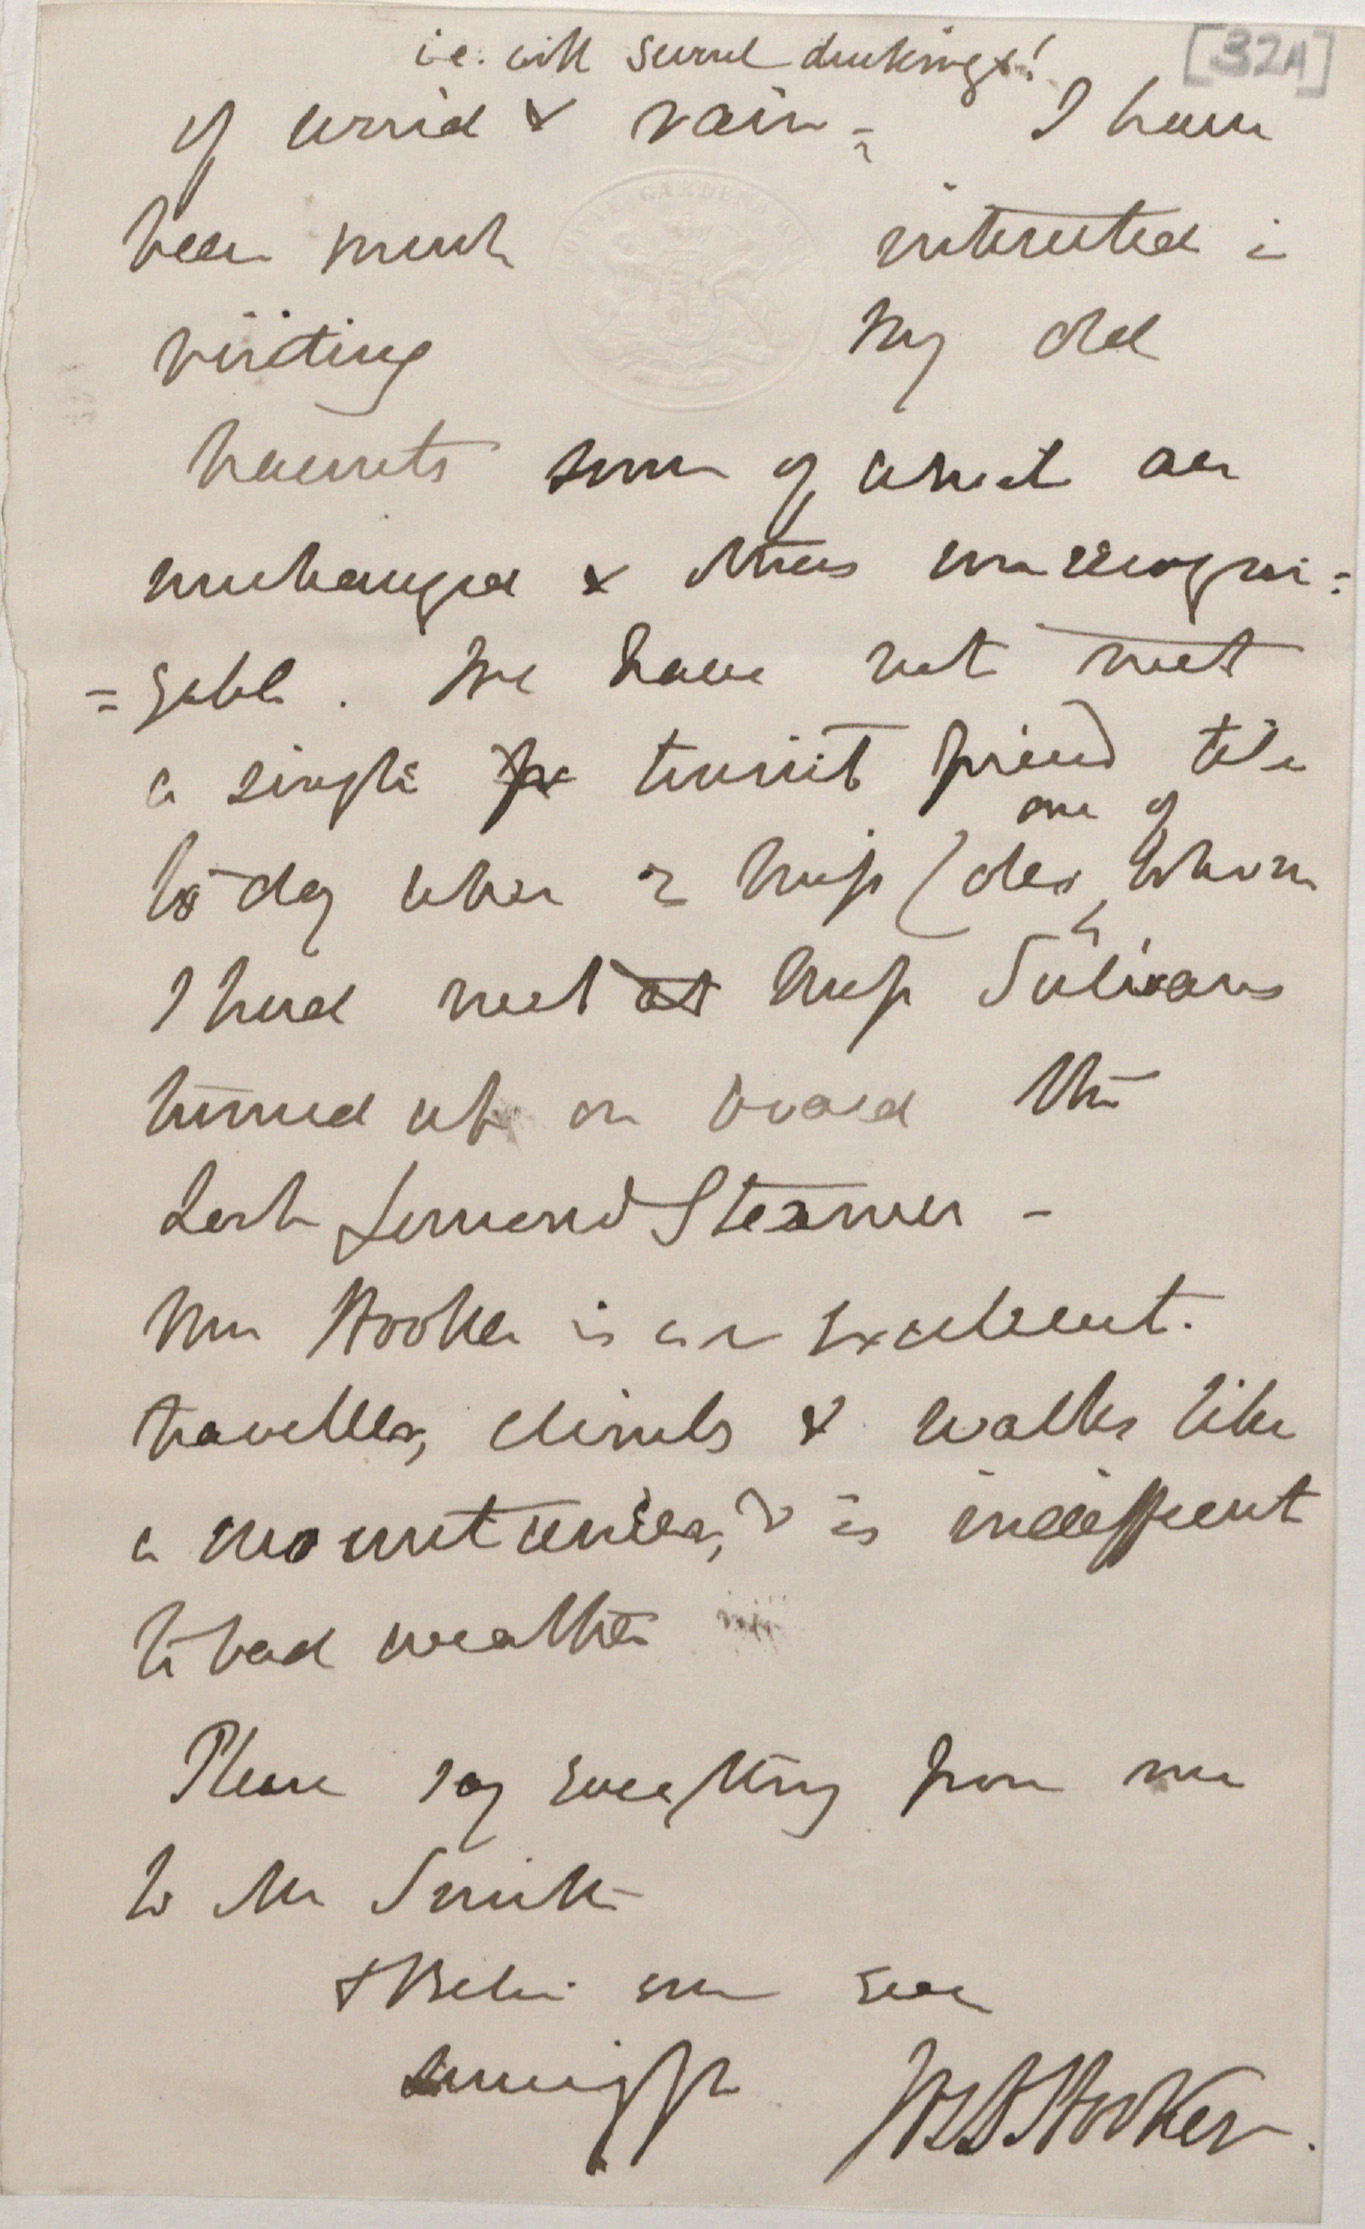 i.e. with several duckings!
[32A]
of wind & rain = I have
been much interested in
visiting my old
haunts some of which are
unchanged & others unrecogni=
=zable. We have not met
a single tourist friend till
to-day when 2 Miss (older, one of whom
I had met at Miss Sulivans
turned up on board the
Loch Lomond Steamer -
Mrs Hooker is an excellent.
traveller, climbs & walks like
a mountaineer, & is indifferent
to bad weather
Please say everything from me
to Mr Smith
& Believe me ever
Jos D Hooker.
ROYAL GARDENS KEW